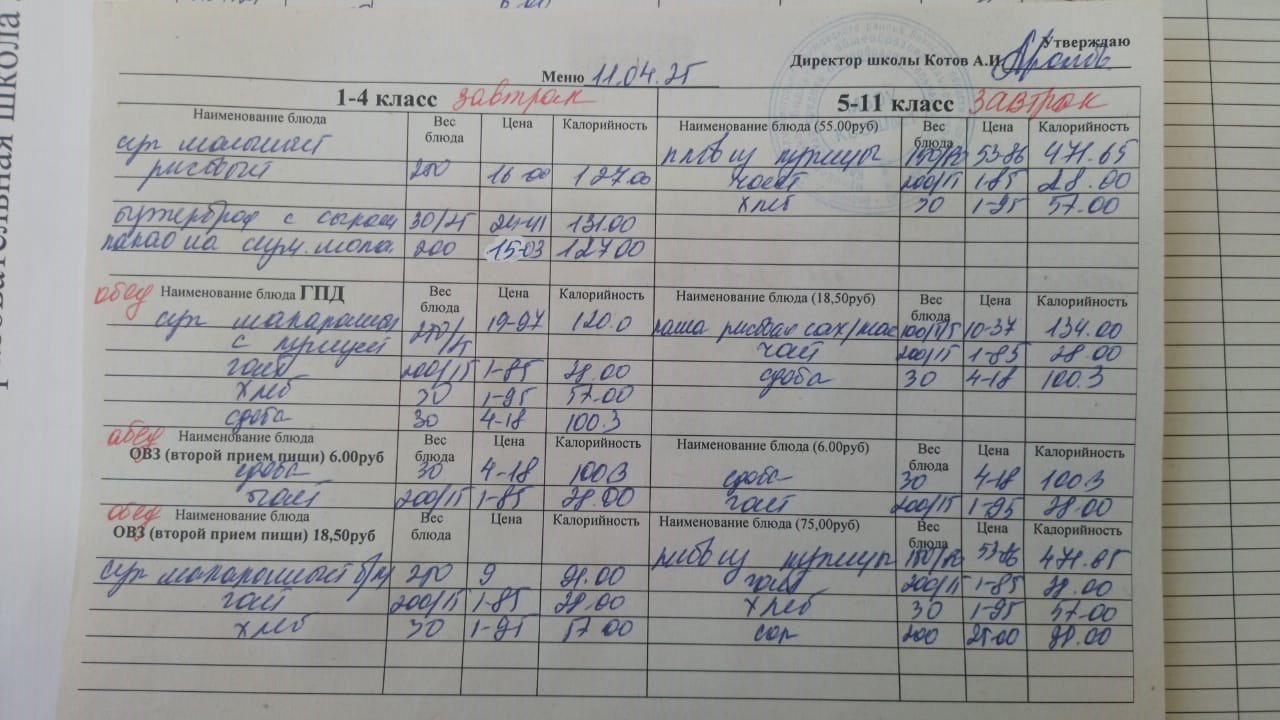 Утверждаю
Директор школы Котов А.И
Меню 11.04.25
1-4 класс завтрак
5-11 класс завтрак
Наименование блюда Вес блюда Цена Калорийность
Наименование блюда (55.00руб) Вес блюда Цена Калорийность
суп молочный
рисовый 250 16-00 127.00
бутерброд с сыром 30/25 24-41 131.00
какао на сгущ. моло. 200 15-03 127.00
плов из курицы 150/80 53-86 471.65
чай 200/15 1-85 28.00
хлеб 30 1-95 57.00
обед Наименование блюда ГПД Вес блюда Цена Калорийность
Наименование блюда (18,50руб) Вес блюда Цена Калорийность
суп макаронный
с курицей 250/15 19-97 120.0
чай 200/15 1-85 28.00
хлеб 30 1-95 57.00
сдоба 30 4-18 100.3
каша рисовая сах/мас 10-37 134.00
чай 200/15 1-85 28.00
сдоба 30 4-18 100.3
обед Наименование блюда Вес блюда Цена Калорийность
ОВЗ (второй прием пищи) 6.00руб
Наименование блюда (6.00руб) Вес блюда Цена Калорийность
сдоба 30 4-18 100.3
чай 200/15 1-85 28.00
сдоба 30 4-18 100.3
чай 200/15 1-95 28.00
обед Наименование блюда Вес блюда Цена Калорийность
ОВЗ (второй прием пищи) 18,50руб
Наименование блюда (75,00руб) Вес блюда Цена Калорийность
суп макаронный 250 9
чай 200/15 1-85 28.00
хлеб 30 1-95 57.00
плов из курицы 150/80 53-86 471.65
чай 200/15 1-85 28.00
хлеб 30 1-95 57.00
сок 200 25-00